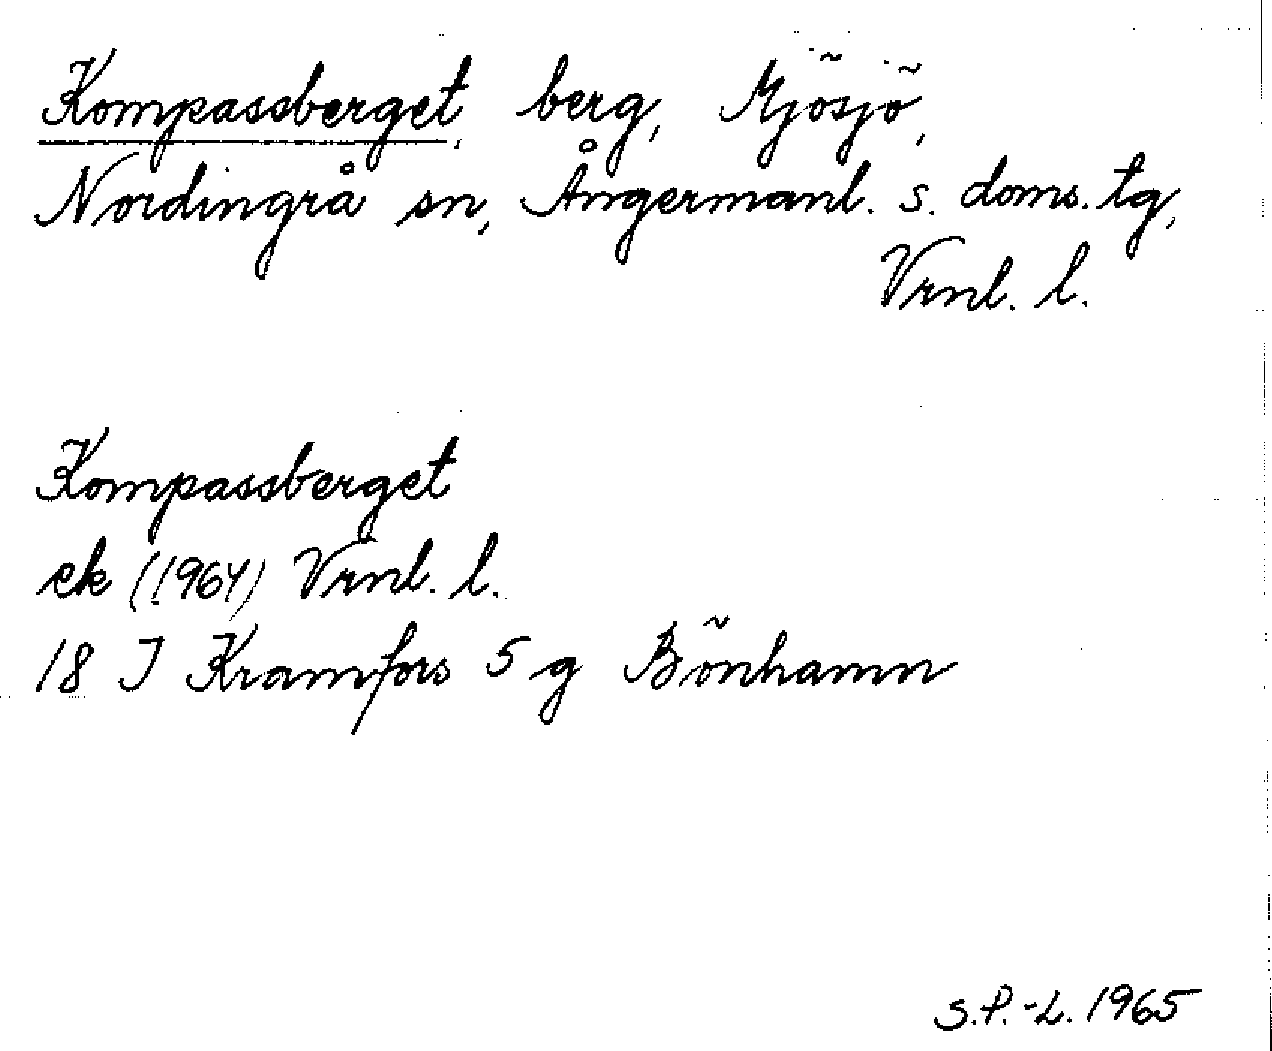 Kompassberget, berg, Mjösjö,
Nordingrå sn, Ångermanl. s. doms. tg,
Vrnl. l.
Kompassberget
ek (1964) Vrnl. l.
18 J Kramfors 5 g Bönhamn
S.P.-L. 1965